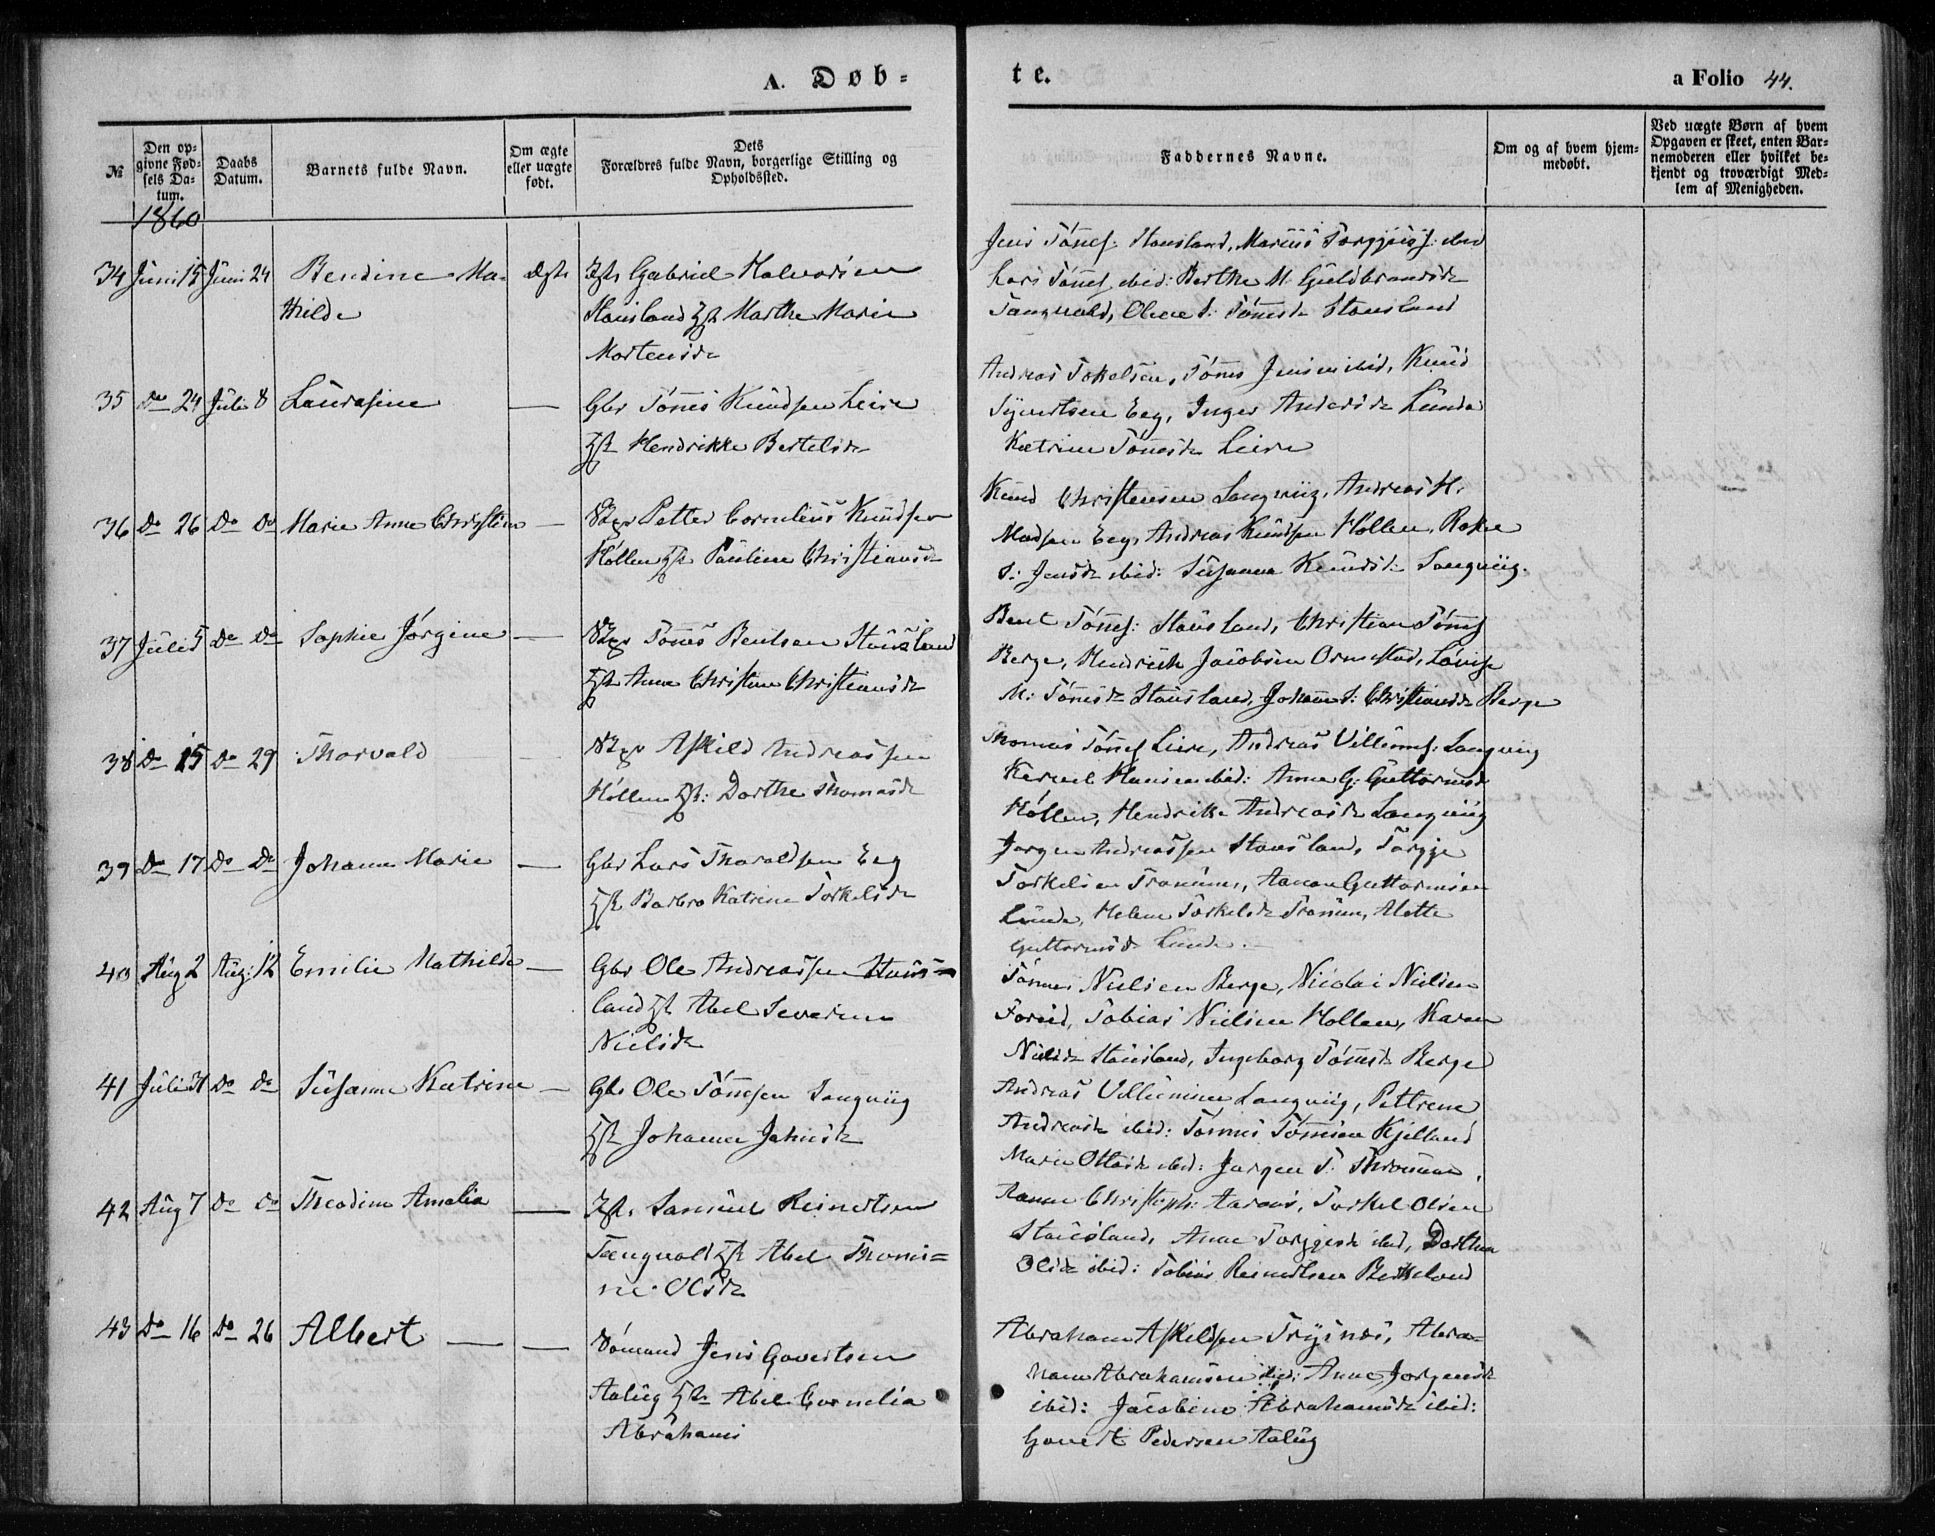 A. Døb-
te.
a Folio 44.
№
Den op-
givne Fød-
sels Da-
tum.
Daabs
Datum.
Barnets fulde Navn.
Om ægte
eller uægte
født.
Dets
Forældres fulde Navn, borgerlige Stilling og
Opholdssted.
Faddernes Navne.
Om og af hvem hjem-
medøbt.
Ved uægte Børn af hvem
Opgaven er skeet, enten Bar-
nemoderen eller hvilket be-
kjendt og troværdigt Med-
lem af Menigheden.
1860
34 Juni 15 Juni 24 Bendine Ma- Ægte Gabriel Halvorsen
thilde Stausland Marthe Marie
Mortensdr
Jens Tönnes: Stausland, Marcus TorgjusS: ibid
Lars Tönnes ibid: Berthe M. Guldbrandsdr
Tangvald, Olene S: Tönnesdr Stausland
35 do 24 Juli 8 Laurasine — Gbr Tönnes Knudsen Leire
Hendrikke Bertelsdr
Andreas Tokelsen, Tönnes Jensen ibid, Knud
Syvertsen Eeg, Inger Andersdr Lunde
Katrine Tönnesdr Leire
36 Do 26 Do Do Marie Anne Christine — Petter Cornelius Knudsen
Höllen Pauline Christiansdr
Knud Christensen Langviig, Andreas H.
Madsen Eeg, Andreas Knudsen Höllen,
S: Jensdr ibid: Susanna Knudsdr Langviig.
37 Juli 5 Do Do Sophie Jörgine — Tönnes Bentsen Stausland
Anne Christine Christiansdr
Bent Tönnes: Stausland, Christian Tönnes
Berge, Hendrich Jacobsen Ormestad, Lovise
M: Tönnesdr Stausland, Johanne S: Christiansdr Berge
38 Do 15 Do 29 Thorvald Askild Andreassen
Höllen Dorthe Thomasdr
Thomas Tönnes Leire, Andreas Villums: Langviig
Hansen ibid: Anne G: Guttormsdr
Höllen, Hendrikke Andreasdr Langviig
39 Do 17 Do Do Johanne Marie — Gbr Lars Tharaldsen Eeg
Barbro Katrine Torkelsdr
Jorgen Andreassen Stausland, Torgje
Torkelsen Tronum, Aanon Guttormsen
Lunde, Helene Torkelsdr Tronum, Alette
Guttormsdr Lunde.
40 Aug 2 Aug: 12 Emilie Mathilde — Gbr Ole Andreassen Staus-
land Abel Severine
Nielsdr
Tönnes Nielsen Berge, Nicolai Nielsen
Tobias Nielsen Hollen, Karen
Nielsdr Stausland, Ingeborg Tönnesdr Berge
41 Juli 31 Do do Susanne Katrine — Gbr Ole Tönnesen Langviig
Johanne Jahnsdr
Andreas Villumsen Langviig, Pettrene
Andreasdr ibid: Tönnes Tönnesen Kjelland
Marie Ottosdr ibid: Jorgen T: Thronum
42 Aug 7 do do Theodine Amalia — Samuel Reinertsen
Tangvald Abel Thomi-
ne Olsdr
Christoph: Torkel Olsen
Stausland, Anne Torgjusdr ibid, Dorthea
Olsdr ibid: Tobias Reinertsen
43 Do 16 Do 26 Albert — — Sömand Jens Govertsen
Aalug Abel Cornelia
Abrahams
Abraham Askildsen Trysnes, Abra-
ham Abrahamsen ibid: Anne Jorgensdr
ibid: Jacobine Abrahamsdr ibid:
Govert Pedersen Aalug